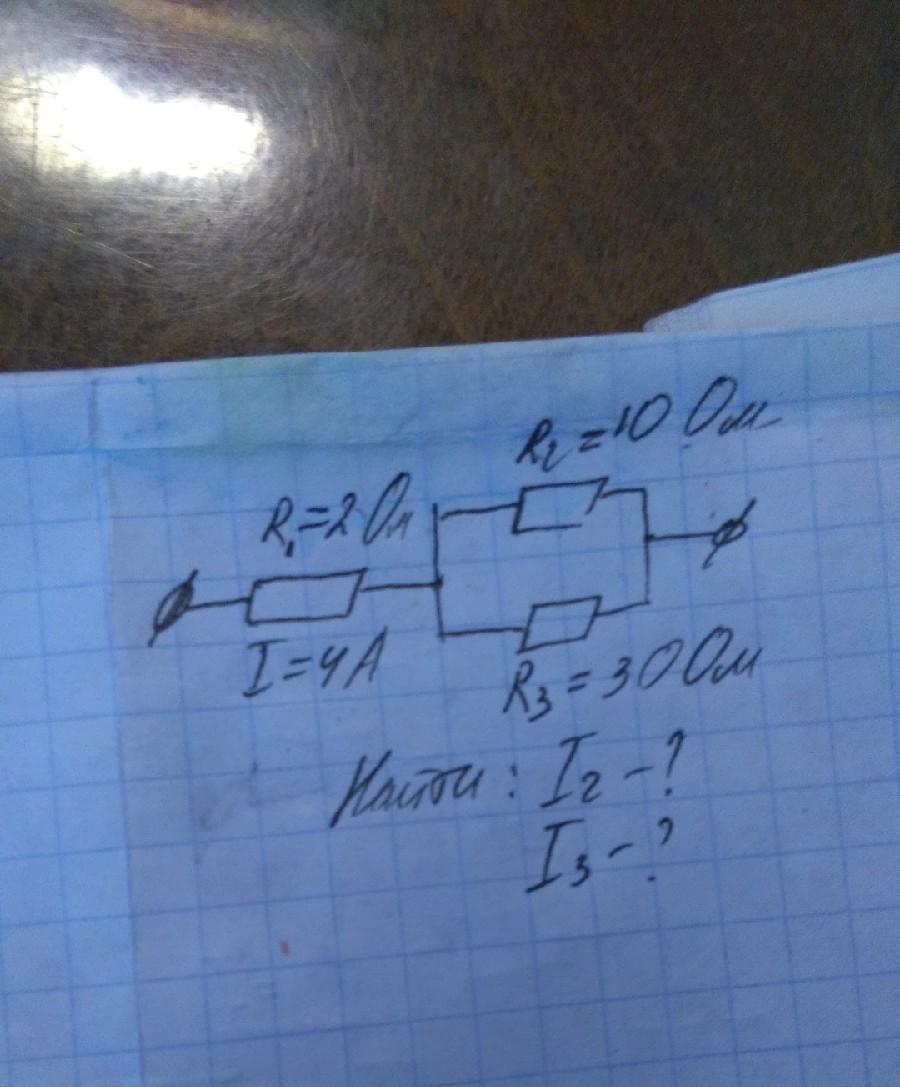 R₂=10 Ом
R₁=2 Ом
I=4А
R₃=30 Ом
Найти: I₂-?
I₃-?